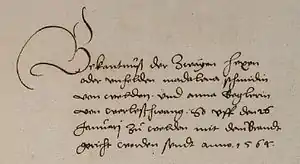 Bekantnuß der Zwayen hexen
oder unhulden madalena schmidin
von welden und anna Beglerin
von verleschwang. So uff den 26
Januarj zu welden mit dem Brandt
gericht worden seindt anno. 1565.